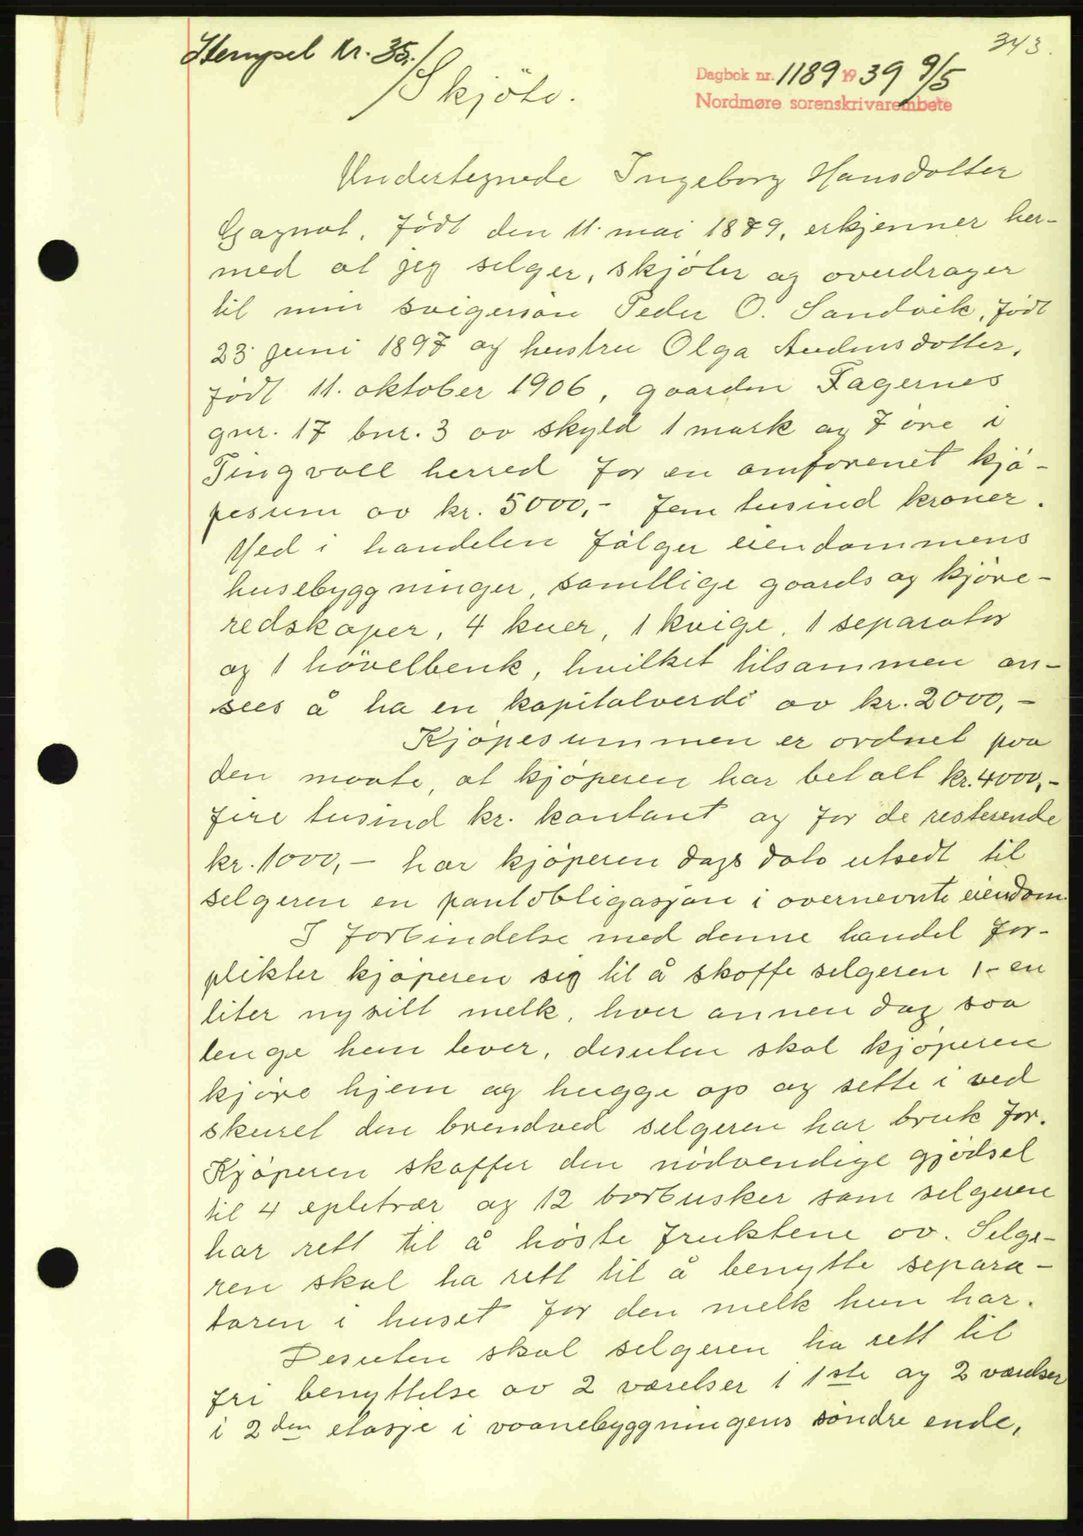 343.
Stempel kr. 35./
Skjöte.
Dagbok nr. 1189 1939 9/5
Nordmøre sorenskrivarembete
Undertegnede Ingeborg Hansdotter
Gagnat, født den 11. mai 1879, erkjenner her-
med at jeg selger, skjöter og overdrager
til min svigersön Peder O. Sandvik, født
23. juni 1897 og hustru Olga Audunsdotter,
født 11. oktober 1906, gaarden Fagernes
gnr. 17 bnr. 3 av skyld 1 mark og 7 öre i
Tingvoll herred for en omforenet kjö-
pesum av kr. 5000,- fem tusind kroner.
Ved i handelen følger eiendommens
husebyggninger, samtlige gaards og kjöre-
redskaper, 4 kuer, 1 kvige, 1 separator
og 1 hövelbenk, hvilket tilsammen an-
sees å ha en kapitalverdi av kr. 2000,-
Kjöpesummen er ordnet paa
den maate, at kjöperen har betalt kr. 4000,-
fire tusind kr. kontant og for de resterende
kr. 1000,- har kjöperen dags dato utsedt til
selgeren en pantobligasjon i overnevnte eiendom.
I forbindelse med denne handel for-
plikter kjöperen sig til å skaffe selgeren 1- en
liter nysilt melk, hver annen dag saa
lenge hun lever, desuten skal kjöperen
kjöre hjem og hugge op og sette i ved
skuret den brendved selgeren har bruk for.
Kjöperen skaffer den nödvendige gjödsel
til 4 epletrær og 12 bærbusker som selgeren
har rett til å höste fruktene av. Selge-
ren skal ha rett til å benytte separa-
toren i huset for den melk hun har.
Desuten skal selgeren ha rett til
fri benyttelse av 2 værelser i 1ste og 2 værelser
i 2den etasje i vaanebyggningens söndre ende,